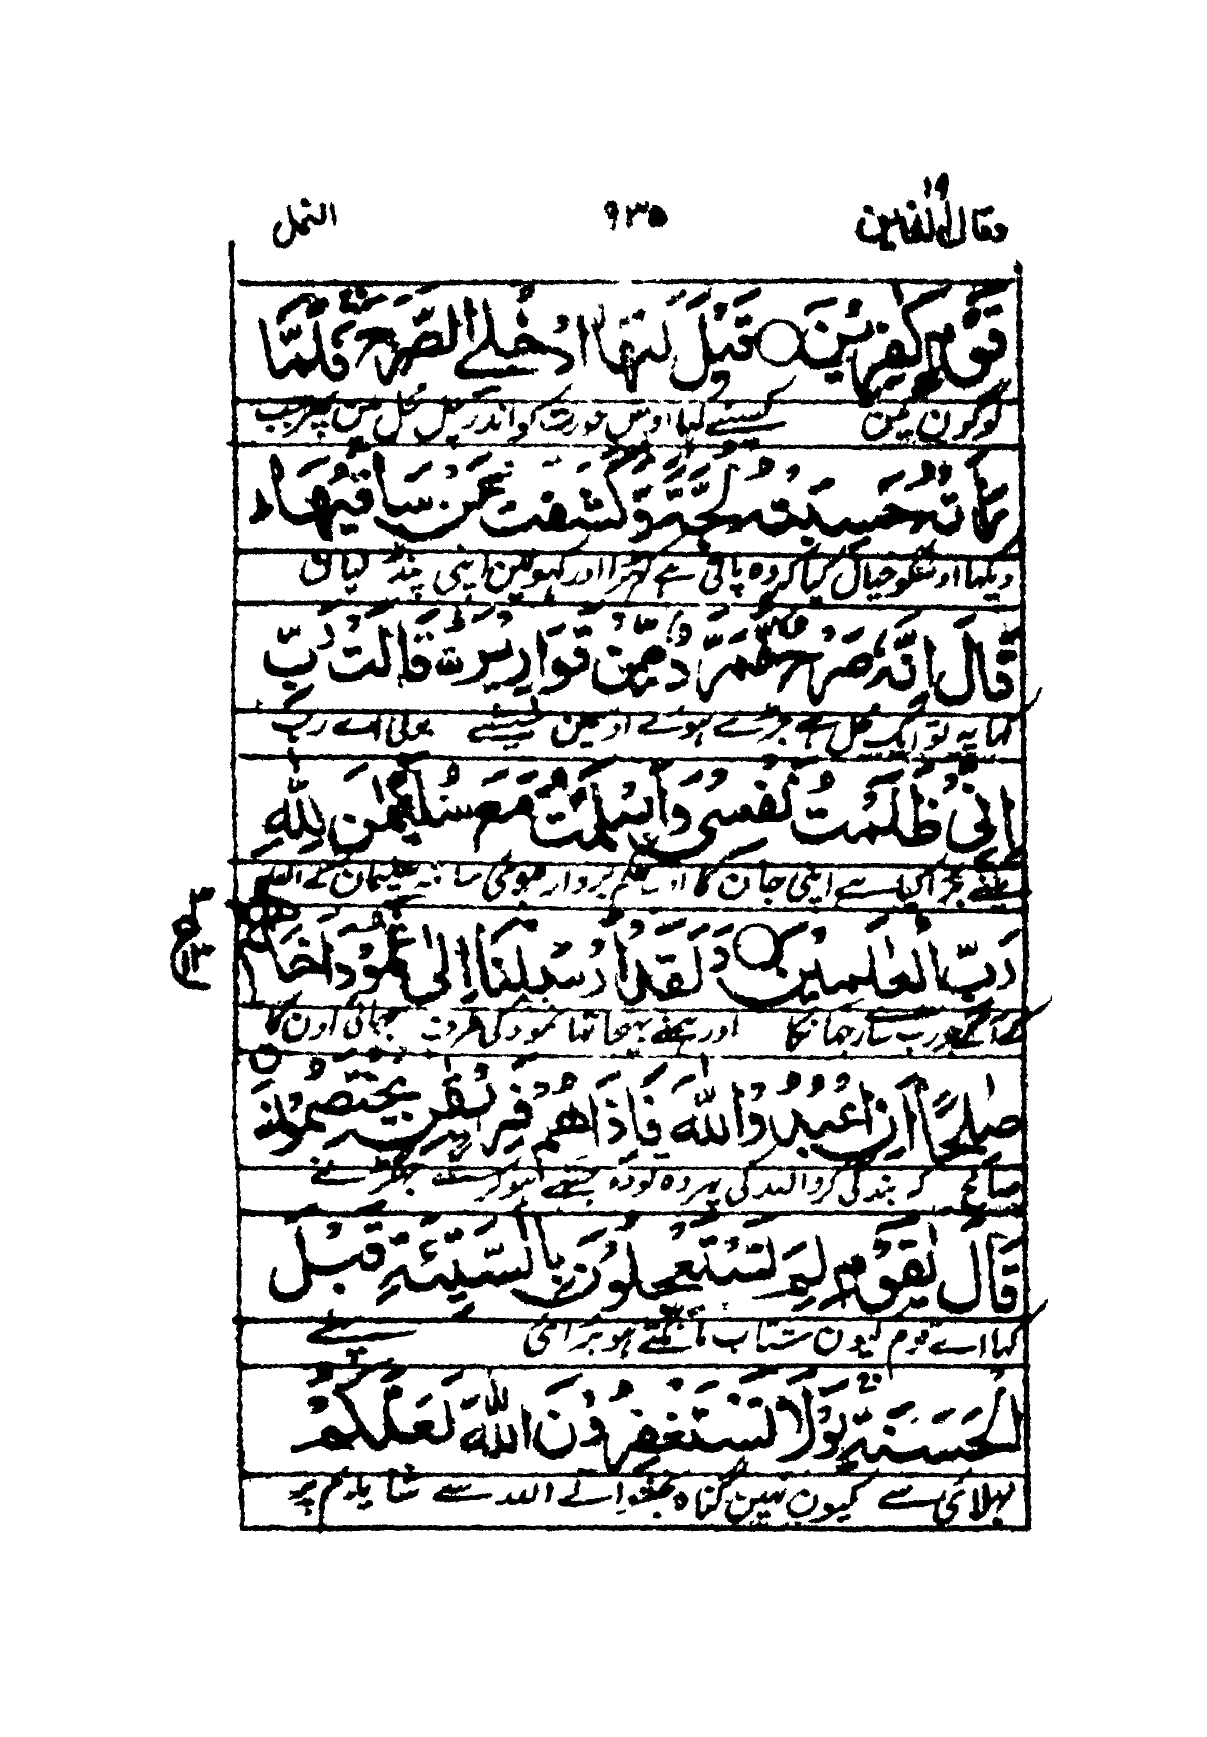 وقال الذين ١٩
٩٣٥
النمل
قَوْمٍ كٰفِرِيْنَ ○ قِيْلَ لَهَا ادْخُلِي الصَّرْحَ فَلَمَّا
لوگون مین کسنے کہا اوس عورت کو اندر چل محل مین پھر جب
رَاَتْهُ حَسِبَتْهُ لُجَّةً وَّكَشَفَتْ عَنْ سَاقَيْهَا
دیکھا اوسکو خیال کیا کہ وہ پانی ہے گہرا اور کھولین اپنی پنڈلیان
قَالَ اِنَّهٗ صَرْحٌ مُّمَرَّدٌ مِّنْ قَوَارِيْرَ قَالَتْ رَبِّ
کہا یہ تو ایک محل ہے جڑے ہوئے اوسمین شیشے بولی اے رب
اِنِّيْ ظَلَمْتُ نَفْسِيْ وَاَسْلَمْتُ مَعَ سُلَيْمٰنَ لِلّٰهِ
مینے برا کیا ہے اپنی جان کا اور حکم بردار ہوئی ساتھ سلیمان کے اللہ
رَبِّ الْعٰلَمِيْنَ ○ وَلَقَدْ اَرْسَلْنَا اِلٰى ثَمُوْدَ اَخَاهُمْ
کے آگے جو رب سارے جہان کا اور ہمنے بھیجا تھا ثمود کی طرف بھائی اون کا
صٰلِحًا اَنِ اعْبُدُوا اللّٰهَ فَاِذَا هُمْ فَرِيْقٰنِ يَخْتَصِمُوْنَ
صالح کہ بندگی کرو اللہ کی پھر وہ تو دو جتھے ہوکر لگے جھگڑنے
قَالَ يٰقَوْمِ لِمَ تَسْتَعْجِلُوْنَ بِالسَّيِّئَةِ قَبْلَ
کہا اے قوم کیون شتاب مانگتے ہو برائی پہلے
الْحَسَنَةِ لَوْلَا تَسْتَغْفِرُوْنَ اللّٰهَ لَعَلَّكُمْ
بھلائی سے کیون نہین گناہ بخشواتے اللہ سے شاید تم پر